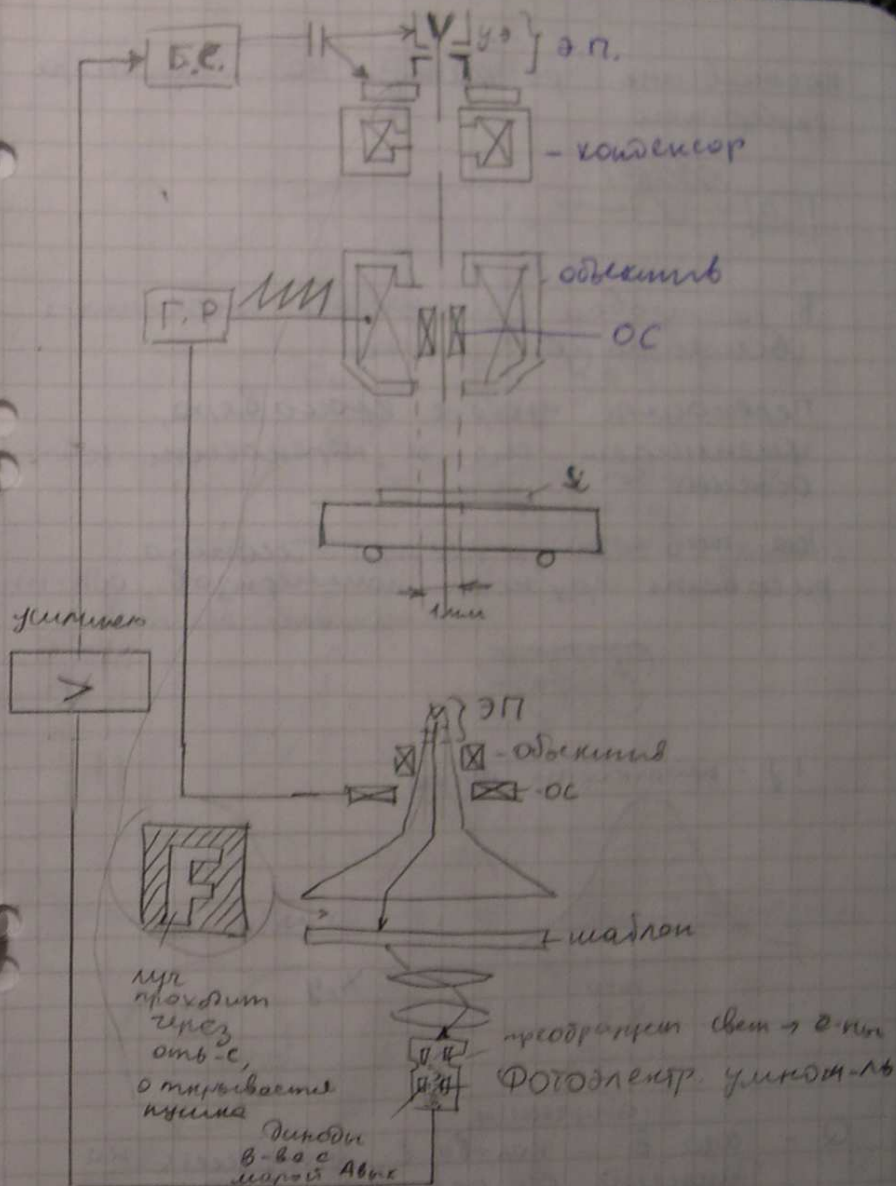 Б.С.
уэ
Э.П.
- конденсор
объектив
Г.Р
ОС
1мм
>
ЭП
- объектив
- ОС
F
- шаблон
луч
проходит
через
отв-е,
открывается
пушка
преобразует свет → э-ны
Фотоэлектр. умнож-ль
диноды
в-ва с
малой Aвых